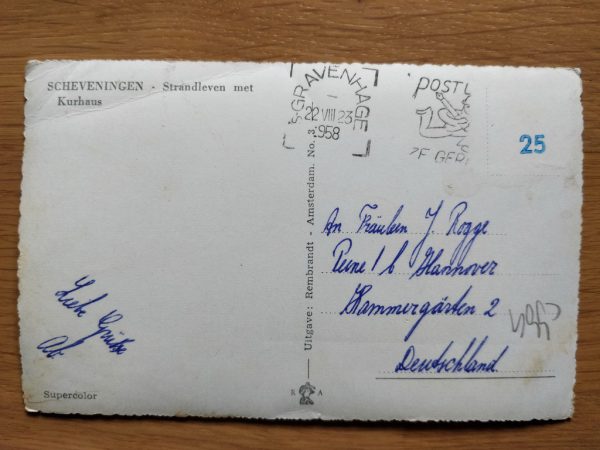 SCHEVENINGEN - Strandleven met
Kurhaus
'S-GRAVENHAGE
22 VIII 23
1958
POSTL
25
An Fräulein J. Rogge
Peine / b Hannover
Hammergärten 2
Deutschland
Uitgave: Rembrandt - Amsterdam. No. 3
Supercolor
R A